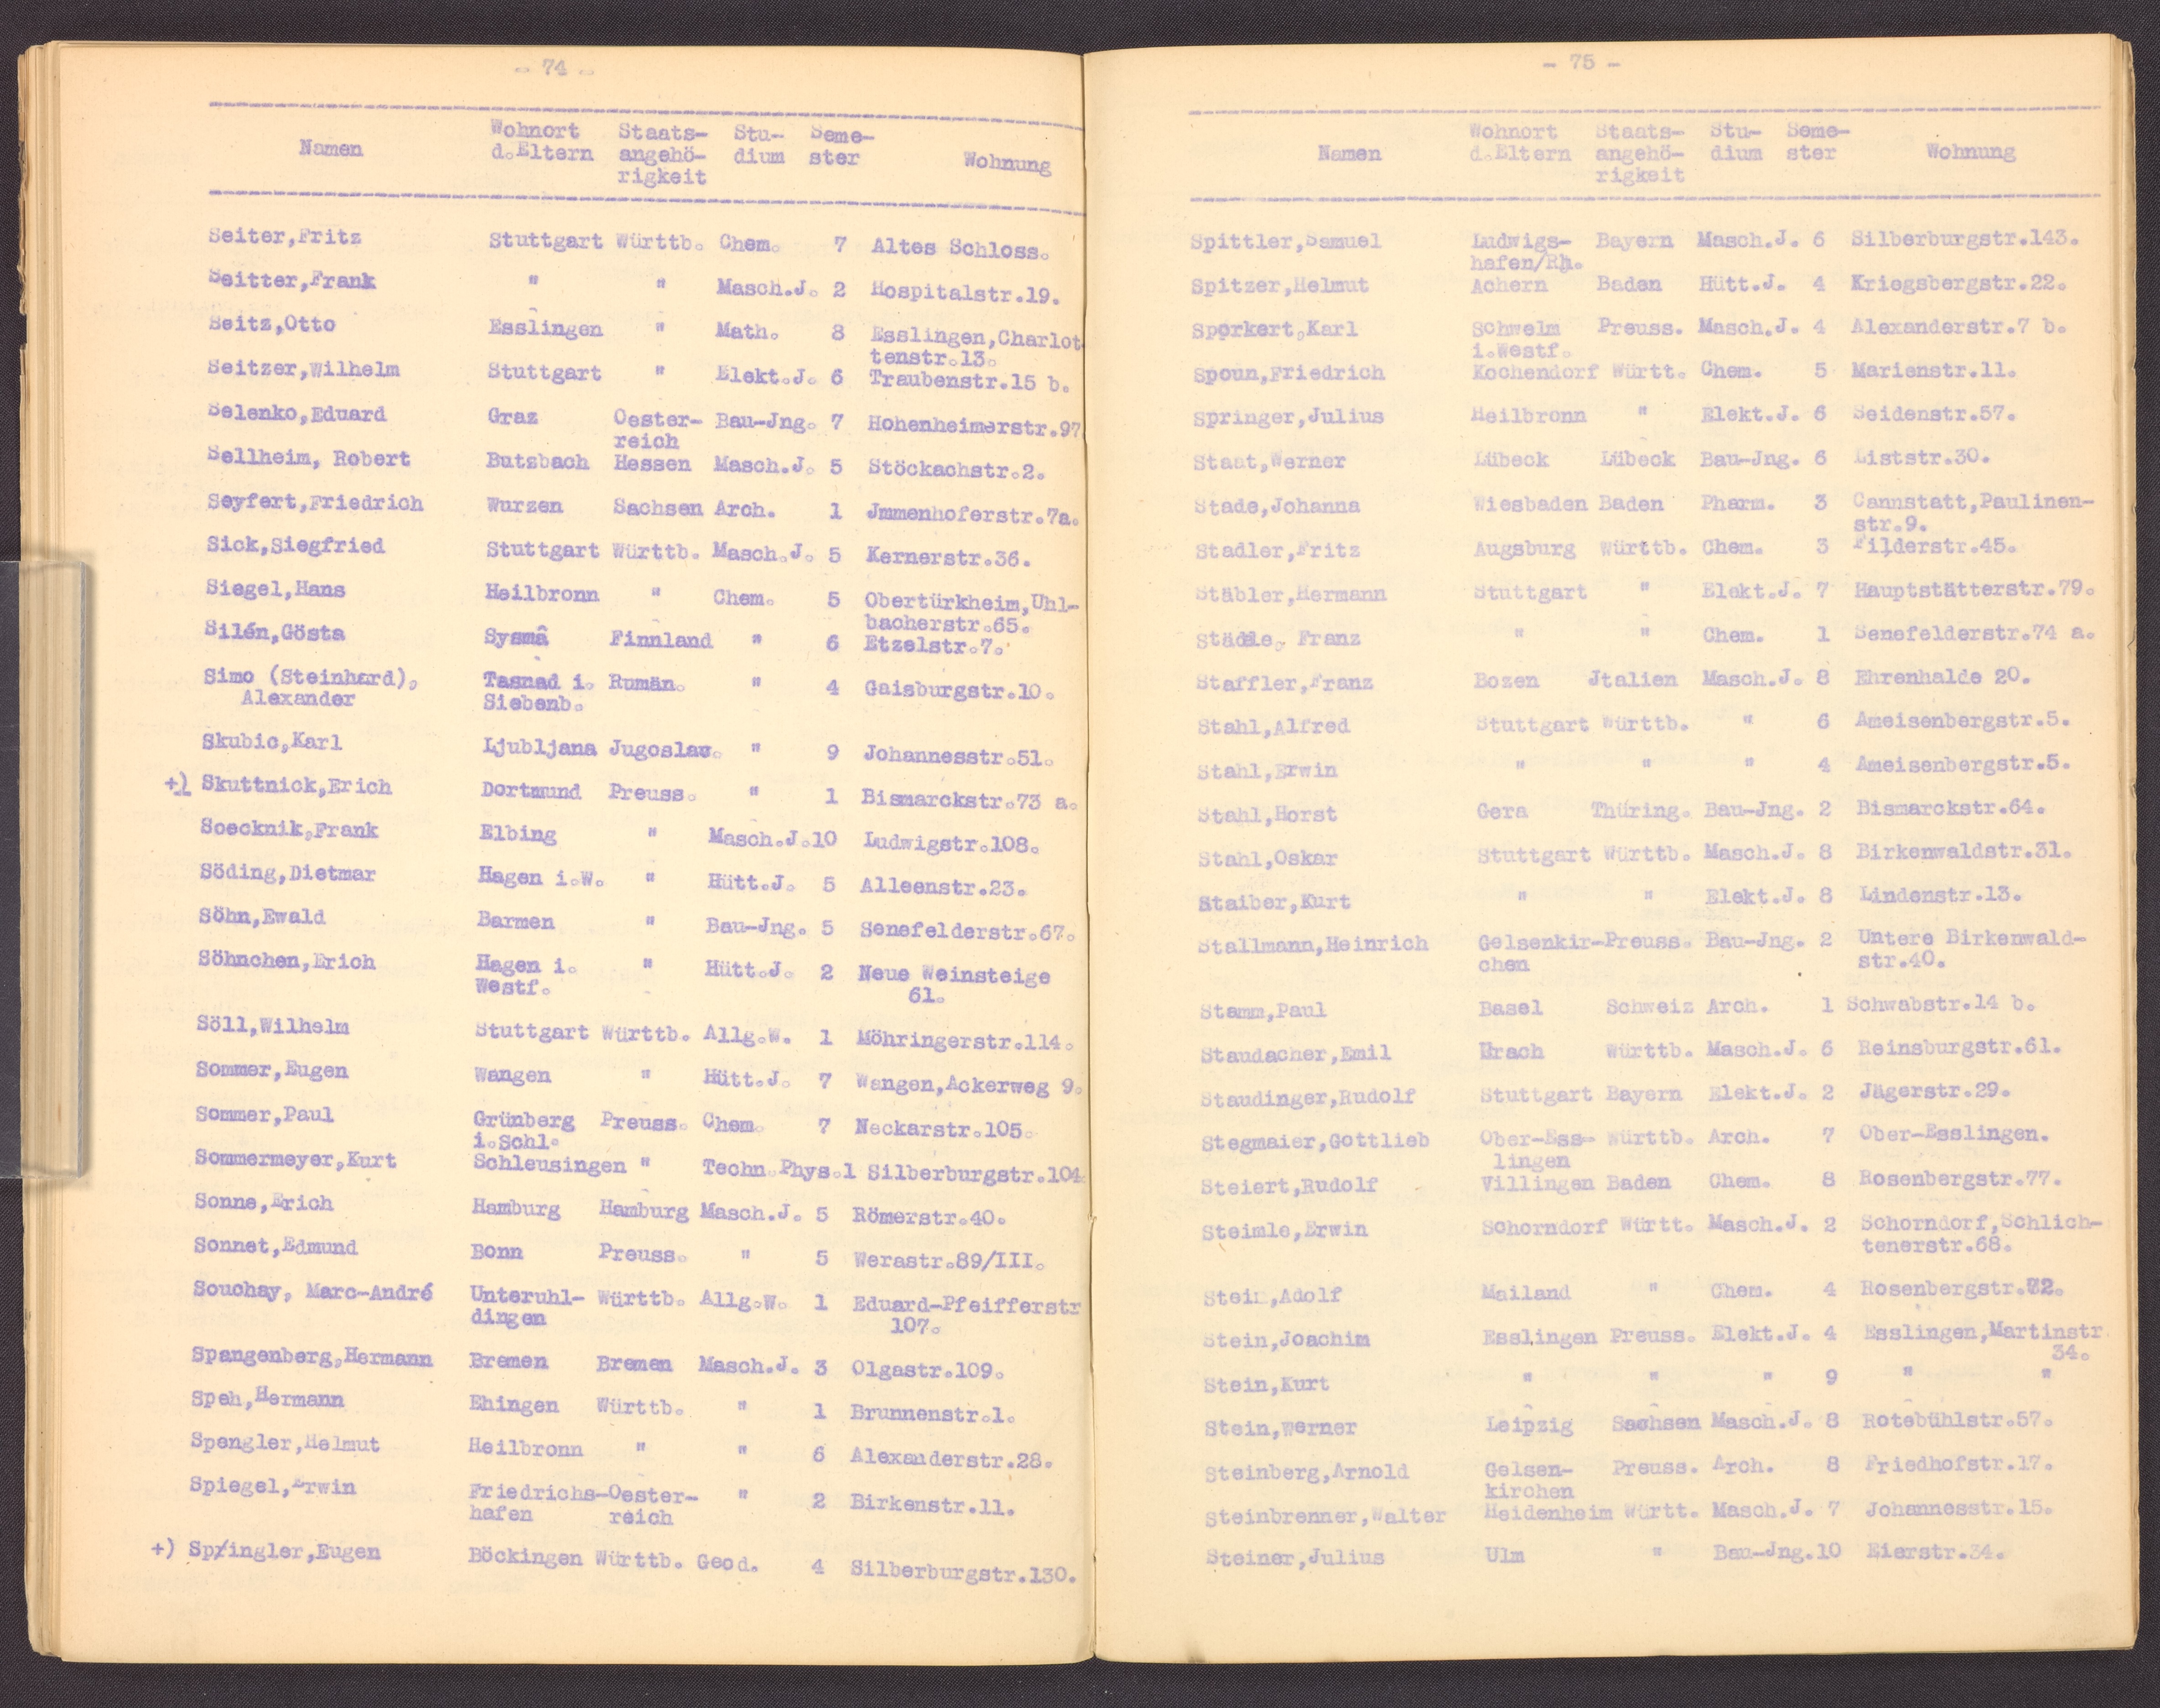 - 74 -
Namen Wohnort d.Eltern Staats-angehö-rigkeit Stu-dium Seme-ster Wohnung
Seiter,Fritz Stuttgart Württb. Chem. 7 Altes Schloss.
Seitter,Frank " " Masch.J. 2 Hospitalstr.19.
Seitz,Otto Esslingen " Math. 8 Esslingen,Charlot-
tenstr.13.
Seitzer,Wilhelm Stuttgart " Elekt.J. 6 Traubenstr.15 b.
Selenko,Eduard Graz Oester- Bau-Jng. 7 Hohenheimerstr.97
reich
Sellheim, Robert Butzbach Hessen Masch.J. 5 Stöckachstr.2.
Seyfert,Friedrich Wurzen Sachsen Arch. 1 Jmmenhoferstr.7a.
Sick,Siegfried Stuttgart Württb. Masch.J. 5 Kernerstr.36.
Siegel,Hans Heilbronn " Chem. 5 Obertürkheim,Uhl-
bacherstr.65.
Silén,Gösta Sysmâ Finnland " 6 Etzelstr.7.
Simo (Steinhard), Tasnad i. Rumän. " 4 Gaisburgstr.10.
Alexander Siebenb.
Skubic,Karl Ljubljana Jugoslaw. " 9 Johannesstr.51.
+) Skuttnick,Erich Dortmund Preuss. " 1 Bismarckstr.73 a.
Soecknik,Frank Elbing " Masch.J.10 Ludwigstr.108.
Söding,Dietmar Hagen i.W. " Hütt.J. 5 Alleenstr.23.
Söhn,Ewald Barmen " Bau-Jng. 5 Senefelderstr.67.
Söhnchen,Erich Hagen i. " Hütt.J. 2 Neue Weinsteige
Westf. 61.
Söll,Wilhelm Stuttgart Württb. Allg.W. 1 Möhringerstr.114.
Sommer,Eugen Wangen " Hütt.J. 7 Wangen,Ackerweg 9.
Sommer,Paul Grünberg Preuss. Chem. 7 Neckarstr.105.
i.Schl.
Sommermeyer,Kurt Schleusingen " Techn.Phys.1 Silberburgstr.104
Sonne,Erich Hamburg Hamburg Masch.J. 5 Römerstr.40.
Sonnet,Edmund Bonn Preuss. " 5 Werastr.89/III.
Souchay, Marc-André Unteruhl- Württb. Allg.W. 1 Eduard-Pfeifferstr
dingen 107.
Spangenberg,Hermann Bremen Bremen Masch.J. 3 Olgastr.109.
Speh,Hermann Ehingen Württb. " 1 Brunnenstr.1.
Spengler,Helmut Heilbronn " " 6 Alexanderstr.28.
Spiegel,Erwin Friedrichs- Oester- " 2 Birkenstr.11.
hafen reich
+) Springler,Eugen Böckingen Württb. Geod. 4 Silberburgstr.130.
- 75 -
Namen Wohnort d.Eltern Staats-angehö-rigkeit Stu-dium Seme-ster Wohnung
Spittler,Samuel Ludwigs- Bayern Masch.J. 6 Silberburgstr.143.
hafen/Rh.
Spitzer,Helmut Achern Baden Hütt.J. 4 Kriegsbergstr.22.
Sporkert,Karl Schwelm Preuss. Masch.J. 4 Alexanderstr.7 b.
i.Westf.
Spoun,Friedrich Kochendorf Württ. Chem. 5 Marienstr.11.
Springer,Julius Heilbronn " Elekt.J. 6 Seidenstr.57.
Staat,Werner Lübeck Lübeck Bau-Jng. 6 Liststr.30.
Stade,Johanna Wiesbaden Baden Pharm. 3 Cannstatt,Paulinen-
str.9.
Stadler,Fritz Augsburg Württb. Chem. 3 Filderstr.45.
Stäbler,Hermann Stuttgart " Elekt.J. 7 Hauptstätterstr.79.
Städele, Franz " " Chem. 1 Senefelderstr.74 a.
Staffler,Franz Bozen Jtalien Masch.J. 8 Ehrenhalde 20.
Stahl,Alfred Stuttgart Württb. " 6 Ameisenbergstr.5.
Stahl,Erwin " " " 4 Ameisenbergstr.5.
Stahl,Horst Gera Thüring. Bau-Jng. 2 Bismarckstr.64.
Stahl,Oskar Stuttgart Württb. Masch.J. 8 Birkenwaldstr.31.
Staiber,Kurt " " Elekt.J. 8 Lindenstr.13.
Stallmann,Heinrich Gelsenkir- Preuss. Bau-Jng. 2 Untere Birkenwald-
chen str.40.
Stamm,Paul Basel Schweiz Arch. 1 Schwabstr.14 b.
Staudacher,Emil Urach Württb. Masch.J. 6 Reinsburgstr.61.
Staudinger,Rudolf Stuttgart Bayern Elekt.J. 2 Jägerstr.29.
Stegmaier,Gottlieb Ober-Ess- Württb. Arch. 7 Ober-Esslingen.
lingen
Steiert,Rudolf Villingen Baden Chem. 8 Rosenbergstr.77.
Steimle,Erwin Schorndorf Württ. Masch.J. 2 Schorndorf,Schlich-
tenerstr.68.
Stein,Adolf Mailand " Chem. 4 Rosenbergstr.
Stein,Joachim Esslingen Preuss. Elekt.J. 4 Esslingen,Martinstr.
34.
Stein,Kurt " " " 9 " "
Stein,Werner Leipzig Sachsen Masch.J. 8 Rotebühlstr.57.
Steinberg,Arnold Gelsen- Preuss. Arch. 8 Friedhofstr.17.
kirchen
Steinbrenner,Walter Heidenheim Württ. Masch.J. 7 Johannesstr.15.
Steiner,Julius Ulm " Bau-Jng.10 Eierstr.34.